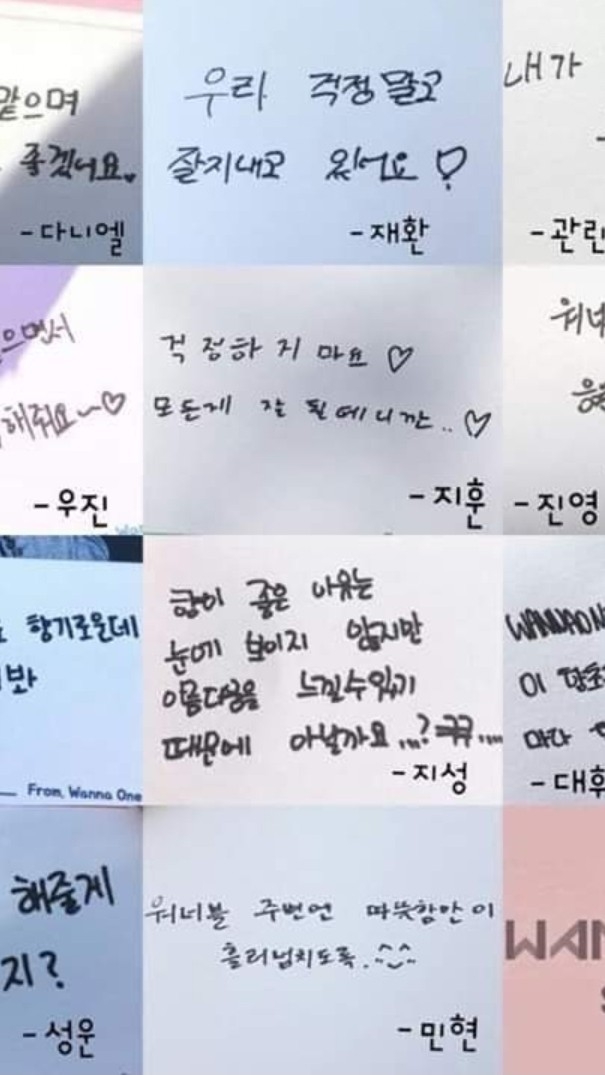 같으며
좋겠네요♥
- 다니엘
우리 걱정말고
잘지내고 있어요♡
- 재환
내가
- 관린
으면서
해줘요~♡
- 우진
걱정하지 마요 ♡
모든게 잘 될테니깐..♡
- 지훈
워너
- 진영
향기로운데
봐
From, Wanna One
향이 좋은 이유는
눈에 보이지 않지만
아름다움을 느낄수있기
때문에 아닐까요...? ㅋㅋ....
- 지성
이
마다
- 대휘
해줄게
지?
- 성운
워너블 주변엔 따뜻함만이
흘러넘치도록. ^^
- 민현
WAN
S